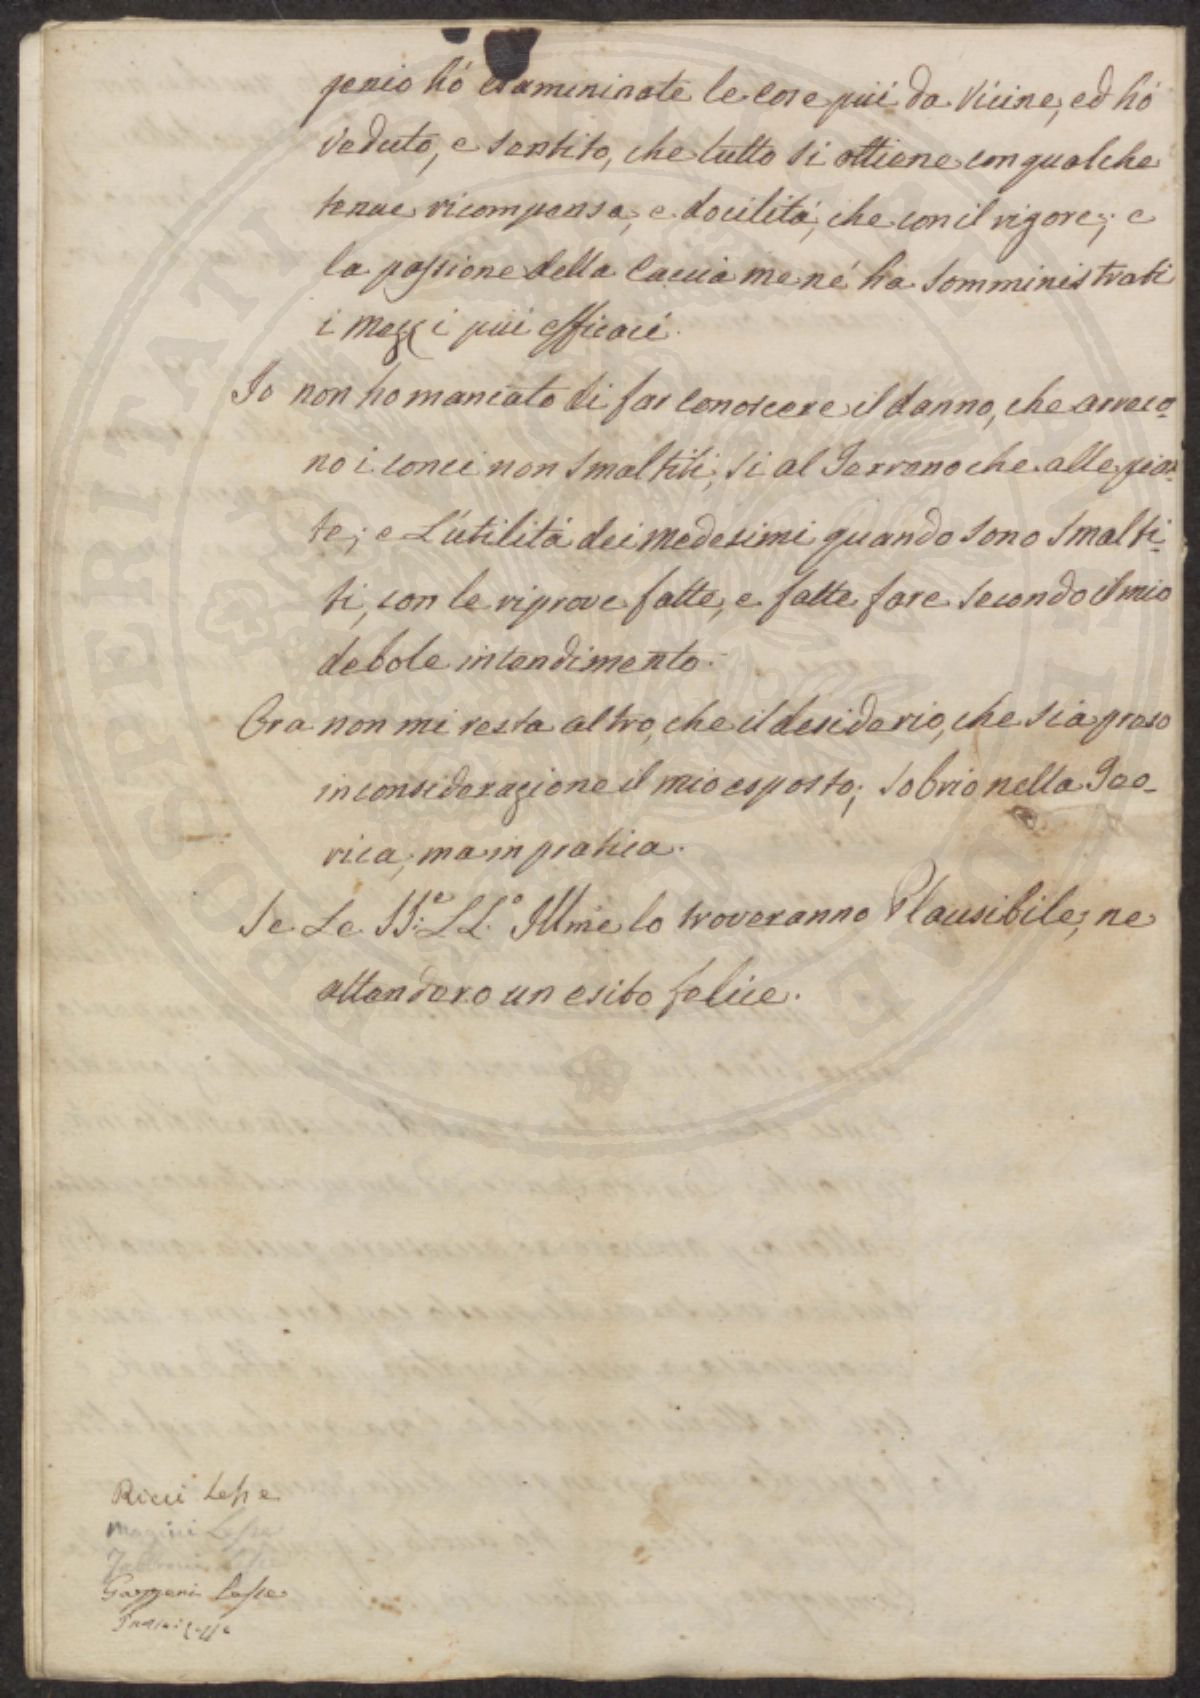 genio hó esamininate le cose più da Vicine, ed hó
Veduto, e sentito, che tutto si ottiene con qualche
tenue ricompensa, e docilità, che con il rigore; e
la passione della Caccia me né ha somministrati
i Mezzi più efficaci.
Io non ho mancato di far conoscere il danno, che arreca-
no i conci non smaltiti, si al Terreno che alle pian-
te; e L'utilità dei Medesimi quando sono smalti-
ti, con le riprove fatte, e fatte fare secondo il mio
debole intendimento.
Ora non mi resta altro, che il desiderio, che sia preso
in considerazione il mio esposto; sobrio nella Teo-
rica, ma in pratica.
Se Le SS.e LL.e Illme lo troveranno Plausibile, ne
attendero un esito felice.
Ricci Lesse
Magini Lesse
Lesse
Gazzeri Lesse
Lesse
PROSPERITATI PUBLICAE AUGENDAE